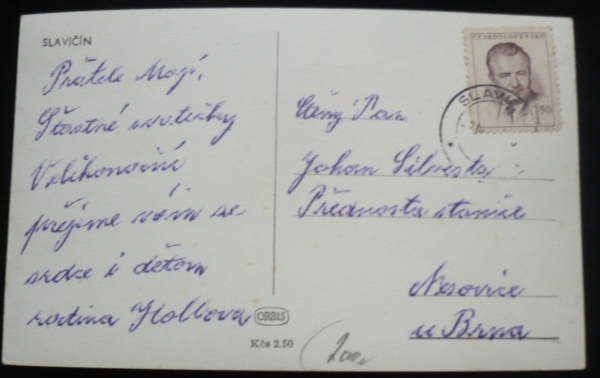 SLAVIČÍN
Přátelé Mojí,
Štastné svatečky
Velikonoční
přejeme vám ze
srdce i dětem
rodina Hollbova
ORBIS
Kčs 2.50
ČESKOSLOVENSKO
1.50
SLAVI
Ctěný Pan
Johan Silvestr
Přednosta stanice
Nesovice
u Brna
200,